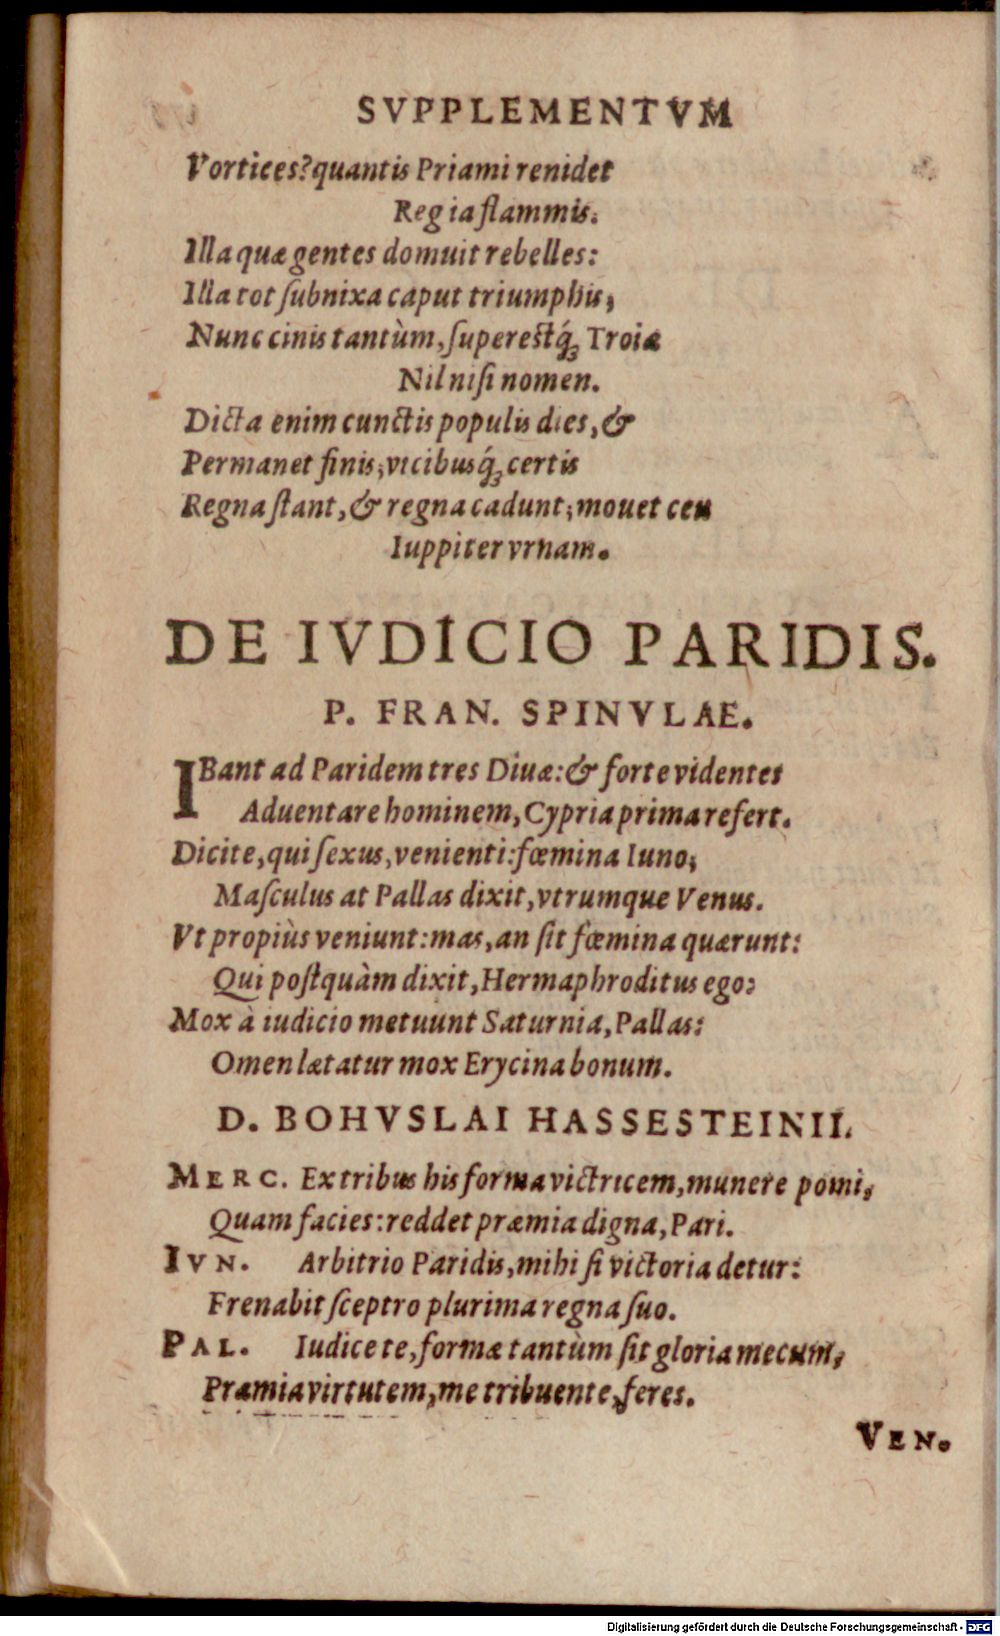 SVPPLEMENTVM
Vortices? quantis Priami renidet
Regia flammis.
Illa quæ gentes domuit rebelles:
Illa tot ſubnixa caput triumphis,
Nunc cinis tantùm, ſupereſtq́ꝫ Troiæ
Nil niſi nomen.
Dicta enim cunctis populis dies, &
Permanet finis; vicibusq́ꝫ certis
Regna ſtant, & regna cadunt; mouet ceu
Iuppiter vrnam.
DE IVDICIO PARIDIS.
P. FRAN. SPINVLAE.
IBant ad Paridem tres Diuæ: & forte videntes
Aduentare hominem, Cypria prima refert.
Dicite, qui ſexus, venienti: fœmina Iuno;
Maſculus at Pallas dixit, vtrumque Venus.
Vt propiùs veniunt: mas, an ſit fœmina quærunt:
Qui poſtquàm dixit, Hermaphroditus ego:
Mox à iudicio metuunt Saturnia, Pallas:
Omen lætatur mox Erycina bonum.
D. BOHVSLAI HASSESTEINII.
MERC. Ex tribus his forma victricem, munere pomi,
Quam facies: reddet præmia digna, Pari.
IVN. Arbitrio Paridis, mihi ſi victoria detur:
Frenabit ſceptro plurima regna ſuo.
PAL. Iudice te, formæ tantùm ſit gloria mecum,
Præmia virtutem, me tribuente, feres.
VEN.
Digitalisierung gefördert durch die Deutsche Forschungsgemeinschaft - DFG